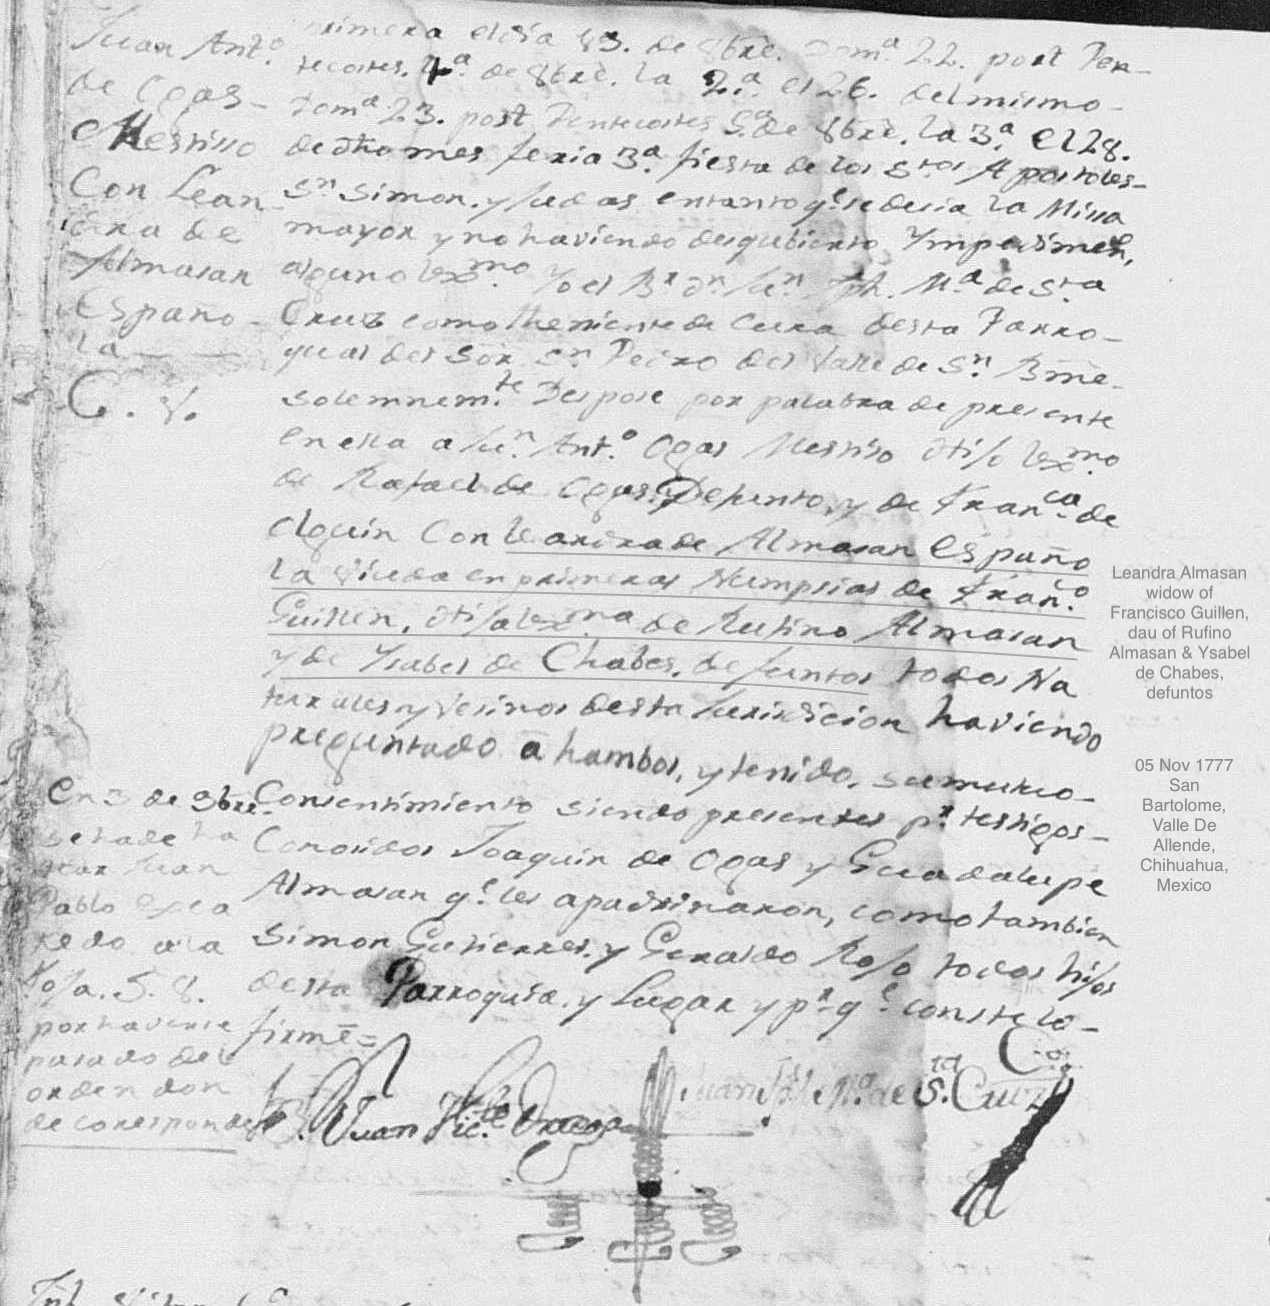 Juan Anto.
de Ogas
Mestiso
Con Lean
dra de
Almasan
Españo
la
C. V.
primera el dia 19. de 8bre. Doma. 22. post Pen-
tecostes, 4a. de 8bre. la 2a. el 26. del mismo
Doma 23. post Pentecostes 5a. de 8bre. la 3a. el 28.
de dho mes feria 3a. fiesta de los Stos. Apostoles
Sn. Simon, y Judas en tanto qe. se desia la Missa
mayor y no haviendo desqubierto Ympedimen,
alguno lexmo. Yo el Br. Dn. Jun. Jph. Ma. de Sta
Cruz como Theniente de Cura desta Parro-
quial del Sor. Sn. Pedro del Valle de Sn. Bme.
solemnemte. Despose por palabra de presente
en ella a Jun. Anto. Ogas Mestiso Hijo lexmo.
de Rafael de Ogas, Defunto, y de Franca. de
Olguin Con Leandra de Almasan Españo
la Viuda en primeras Numpsias de Frano.
Guillen, Hija lexma. de Rufino Almasan
y de Ysabel de Chabes, defuntos todos Na
turales y Vesinos desta Jurisdicion haviendo
preguntado a hambos, y tenido, su mutuo
Consentimiento siendo presentes pr. testigos
Conosidos Joaquin de Ogas y Guadalupe
Almasan qe. les apadrinaron, como tambien
Simon Gutierres, y Geraldo Rojo todos hijos
desta Parroquia, y Lugar y pr. qe. conste lo
firme=
En 3 de 9bre.
se ha de
Juan
Pablo
a la
foja. 5. 8.
por haverse
pasado del
orden don
de coresponde
Br. Juan Ortega
Juan Jph. Ma. de Sta. Cruz
Leandra Almasan
widow of
Francisco Guillen,
dau of Rufino
Almasan & Ysabel
de Chabes,
defuntos
05 Nov 1777
San
Bartolome,
Valle De
Allende,
Chihuahua,
Mexico